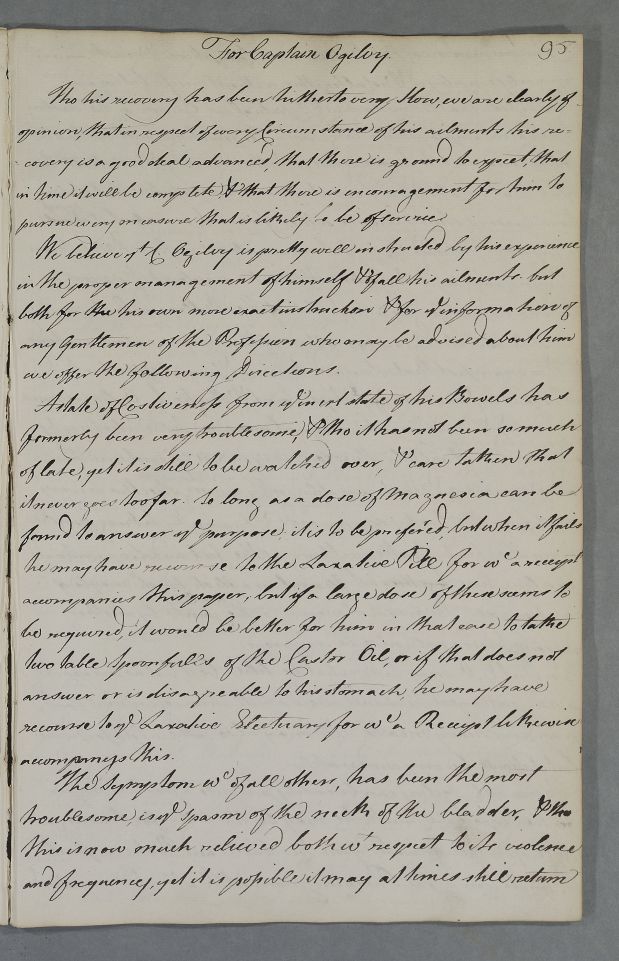 For Captain Ogilvy. 95
Tho his recovery has been hitherto very slow, we are clearly of
opinion, that in respect of every Circumstance of his ailments his re=
=covery is a good deal advanced that there is ground to expect, that
in time it will be complete, & that there is encouragement for him to
pursue every measure that is likely to be of service
We believe yt C. Ogilvy is pretty well instructed by his experience
in the proper management of himself & of all his ailments. but
both for the his own more exact instruction & for ye information of
any Gentlemen of the Profession who may be advised about him
we offer the following Directions.
A state of Costiveness from ye inert state of his Bowels has
formerly been very troublesome, & tho it has not been so much
of late, yet it is still to be watched over, & care taken that
it never goes too far. So long as a dose of Magnesia can be
found to answer ye purpose it is to be prefer'd, but when it fails
he may have recourse to the Laxative Pill for wc a receipt
accompanies this paper, but if a large dose of these seems to
be required, it would be better for him in that case to take
two table spoonfulls of the Castor Oil, or if that does not
answer or is disagreable to his stomach, he may have
recourse to ye Laxative Electuary for wc a Receipt likewise
accompanys this.
The Symptom wc of all others, has been the most
troublesome, is ye spasm of the neck of the bladder, & tho
this is now much relieved both wt respect to its violence
and frequency, yet it is possible it may at times still return